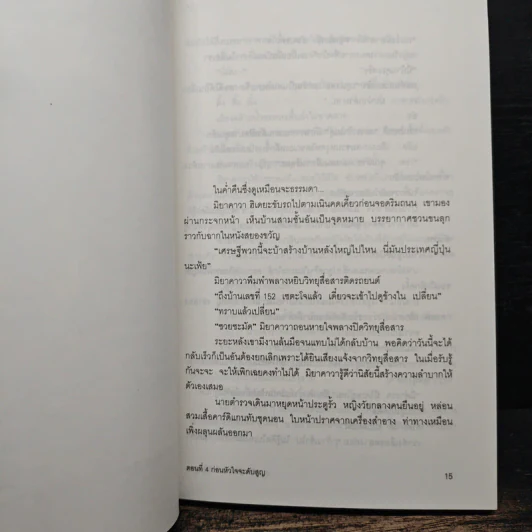 ในค่ำคืนซึ่งดูเหมือนจะธรรมดา...
มิยาคาวา ฮิเดยะขับรถไปตามเนินคดเคี้ยวก่อนจอดริมถนน เขามอง
ผ่านกระจกหน้า เห็นบ้านสามชั้นอันเป็นจุดหมาย บรรยากาศชวนขนลุก
ราวกับฉากในหนังสยองขวัญ
“เศรษฐีพวกนี้จะบ้าสร้างบ้านหลังใหญ่ไปไหน นี่มันประเทศญี่ปุ่น
นะเฟ้ย”
มิยาคาวาพึมพำพลางหยิบวิทยุสื่อสารติดรถยนต์
“ถึงบ้านเลขที่ 152 เซตะโจแล้ว เดี๋ยวจะเข้าไปดูข้างใน เปลี่ยน”
“ทราบแล้วเปลี่ยน”
“ซวยชะมัด” มิยาคาวาถอนหายใจพลางปิดวิทยุสื่อสาร
ระยะหลังเขามีงานล้นมือจนแทบไม่ได้กลับบ้าน พอคิดว่าวันนี้จะได้
กลับเร็วก็เป็นอันต้องยกเลิกเพราะได้ยินเสียงแจ้งจากวิทยุสื่อสาร ในเมื่อรับรู้
กันจะจะ จะให้เพิกเฉยคงทำไม่ได้ มิยาคาวารู้ดีว่านิสัยนี้สร้างความลำบากให้
ตัวเองเสมอ
นายตำรวจเดินมาหยุดหน้าประตูรั้ว หญิงวัยกลางคนยืนอยู่ หล่อน
สวมเสื้อคาร์ดิแกนทับชุดนอน ใบหน้าปราศจากเครื่องสำอาง ท่าทางเหมือน
เพิ่งผลุนผลันออกมา
ตอนที่ 4 ก่อนหัวใจจะดับสูญ 15